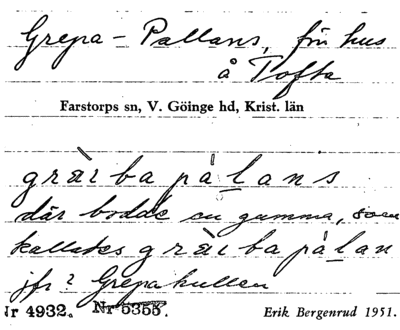 Grepa-Pallans, fru hus
å Tofta
Farstorps sn, V. Göinge hd, Krist. län
græ̀ba pàlans
där bodde en gumma, som
kallades græ̀ba pàlan
jfr ? Grepakullen
Nr 4932. Nr 5355. Erik Bergenrud 1951.